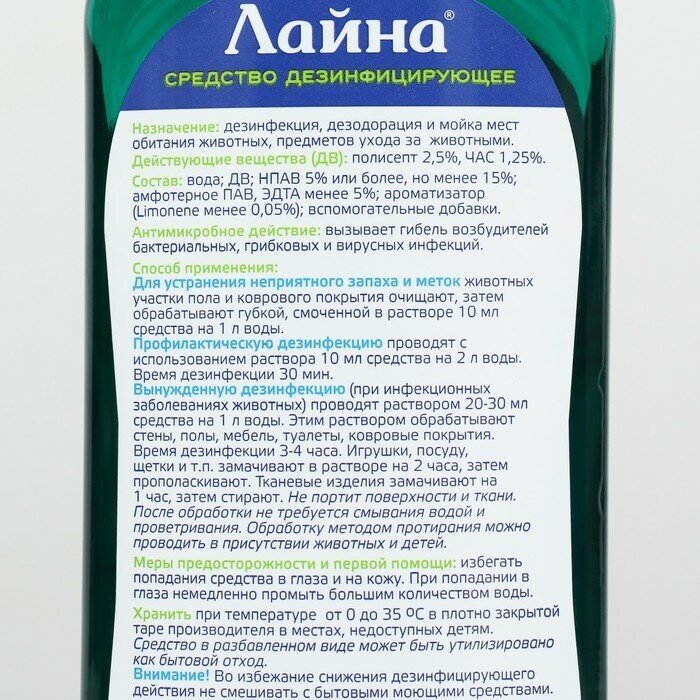 Лайна®
СРЕДСТВО ДЕЗИНФИЦИРУЮЩЕЕ
Назначение: дезинфекция, дезодорация и мойка мест
обитания животных, предметов ухода за животными.
Действующие вещества (ДВ): полисепт 2,5%, ЧАС 1,25%.
Состав: вода; ДВ; НПАВ 5% или более, но менее 15%;
амфотерное ПАВ, ЭДТА менее 5%; ароматизатор
(Limonene менее 0,05%); вспомогательные добавки.
Антимикробное действие: вызывает гибель возбудителей
бактериальных, грибковых и вирусных инфекций.
Способ применения:
Для устранения неприятного запаха и меток животных
участки пола и коврового покрытия очищают, затем
обрабатывают губкой, смоченной в растворе 10 мл
средства на 1 л воды.
Профилактическую дезинфекцию проводят с
использованием раствора 10 мл средства на 2 л воды.
Время дезинфекции 30 мин.
Вынужденную дезинфекцию (при инфекционных
заболеваниях животных) проводят раствором 20-30 мл
средства на 1 л воды. Этим раствором обрабатывают
стены, полы, мебель, туалеты, ковровые покрытия.
Время дезинфекции 3-4 часа. Игрушки, посуду,
щетки и т.п. замачивают в растворе на 2 часа, затем
прополаскивают. Тканевые изделия замачивают на
1 час, затем стирают. Не портит поверхности и ткани.
После обработки не требуется смывания водой и
проветривания. Обработку методом протирания можно
проводить в присутствии животных и детей.
Меры предосторожности и первой помощи: избегать
попадания средства в глаза и на кожу. При попадании в
глаза немедленно промыть большим количеством воды.
Хранить при температуре от 0 до 35 ºС в плотно закрытой
таре производителя в местах, недоступных детям.
Средство в разбавленном виде может быть утилизировано
как бытовой отход.
Внимание! Во избежание снижения дезинфицирующего
действия не смешивать с бытовыми моющими средствами.